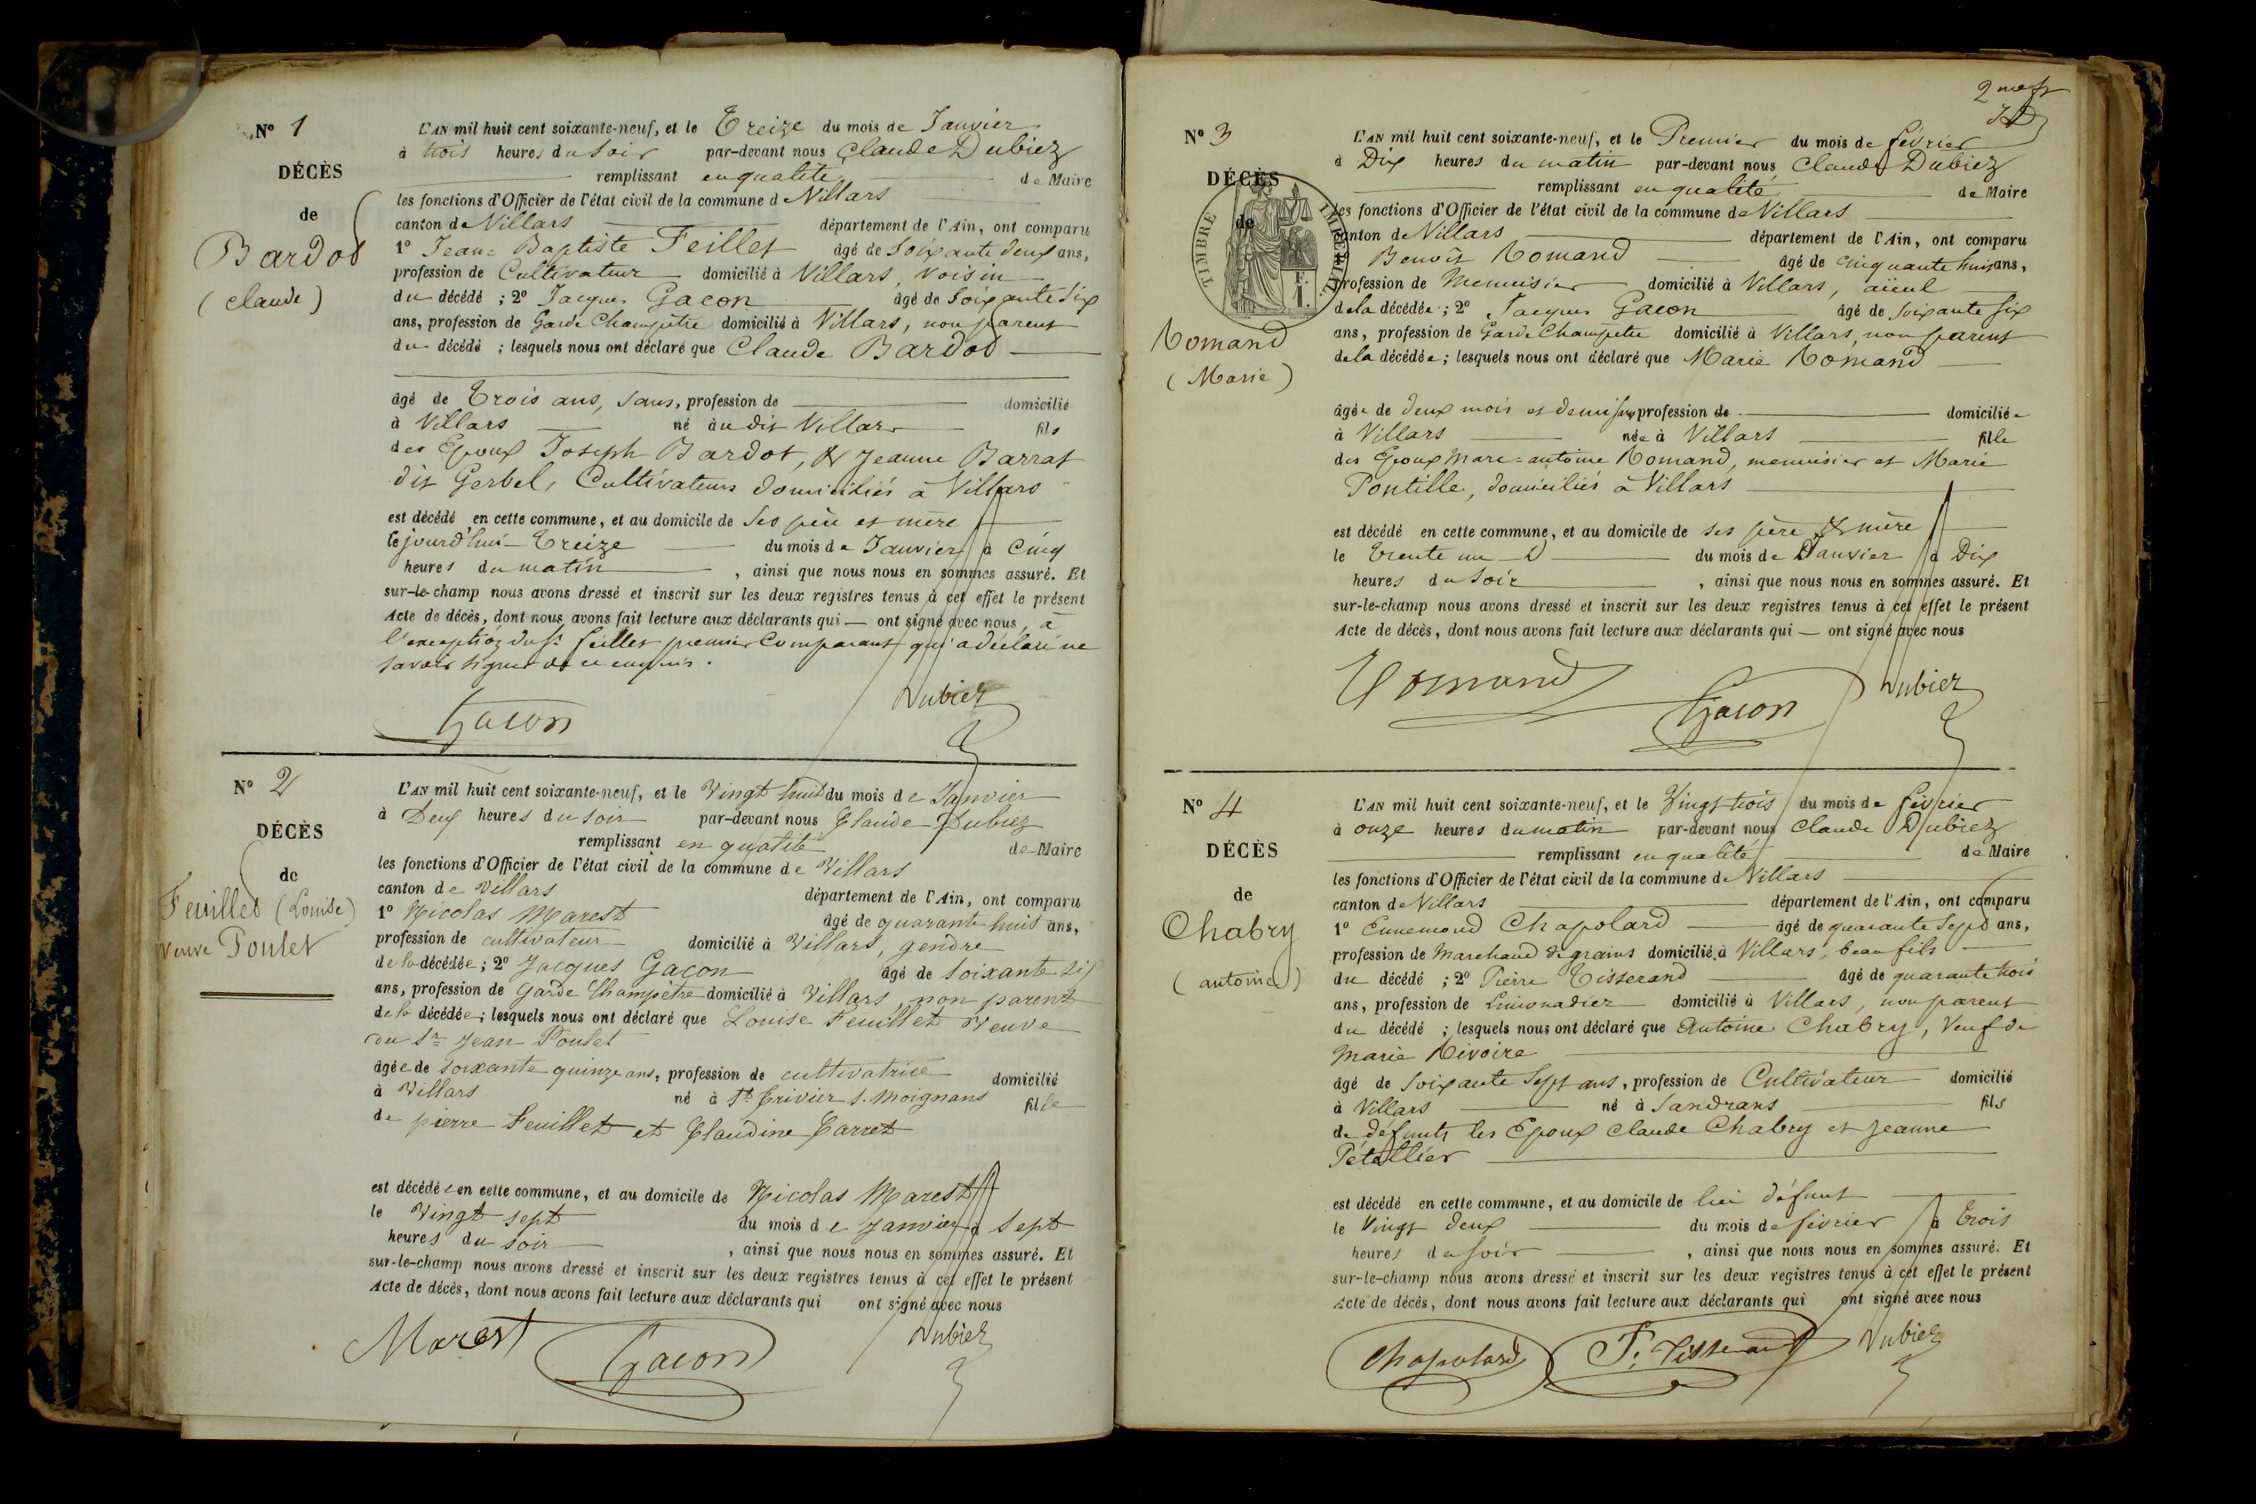 Nº 1
DÉCÈS
de
Bardot
(Claude)
L'AN mil huit cent soixante-neuf, et le Treize du mois de Janvier
à trois heures du soir par-devant nous Claude Dubiez
remplissant en qualité de Maire
les fonctions d'Officier de l'état civil de la commune de Villars
canton de Villars département de l'Ain, ont comparu
1º Jean-Baptiste Feillet âgé de soixante deux ans,
profession de Cultivateur domicilié à Villars, voisin
du décédé ; 2º Jacques Gacon âgé de soixante six
ans, profession de Garde Champêtre domicilié à Villars, non parent
du décédé ; lesquels nous ont déclaré que Claude Bardot
âgé de Trois ans, sans, profession de domicilié
à Villars né au dit Villars fils
des Epoux Joseph Bardot, & Jeanne Barrat
dit Gerbel, Cultivateurs domiciliés à Villars
est décédé en cette commune, et au domicile de ses père et mère
le jourd'hui Treize du mois de Janvier à Cinq
heures du matin , ainsi que nous nous en sommes assuré. Et
sur-le-champ nous avons dressé et inscrit sur les deux registres tenus à cet effet le présent
Acte de décès, dont nous avons fait lecture aux déclarants qui — ont signé avec nous, à
l'exception du Sr. Feillet premier Comparant qui a déclaré ne
savoir signer de ce enquis.
Gacon Dubiez
Nº 2
DÉCÈS
de
Feuillet (Louise)
Veuve Poulet
L'AN mil huit cent soixante-neuf, et le Vingt huit du mois de Janvier
à Deux heures du soir par-devant nous Claude Dubiez
remplissant en qualité de Maire
les fonctions d'Officier de l'état civil de la commune de Villars
canton de Villars département de l'Ain, ont comparu
1º Nicolas Marest âgé de quarante huit ans,
profession de cultivateur domicilié à Villars, gendre
de la décédée ; 2º Jacques Gacon âgé de soixante six
ans, profession de Garde Champêtre domicilié à Villars, non parent
de la décédée ; lesquels nous ont déclaré que Louise Feuillet Veuve
du Sr Jean Poulet
âgée de soixante quinze ans, profession de cultivatrice domicilié
à Villars né à St Trivier s. Moignans fille
de pierre Feuillet et Claudine Carret
est décédée en cette commune, et au domicile de Nicolas Marest
le Vingt sept du mois de Janvier à sept
heures du soir , ainsi que nous nous en sommes assuré. Et
sur-le-champ nous avons dressé et inscrit sur les deux registres tenus à cet effet le présent
Acte de décès, dont nous avons fait lecture aux déclarants qui ont signé avec nous
Marest Gacon Dubiez
2
Nº 3
DÉCÈS
de
TIMBRE IMPÉRIAL
Romand
(Marie)
L'AN mil huit cent soixante-neuf, et le Premier du mois de février
à Dix heures du matin par-devant nous Claude Dubiez
remplissant en qualité de Maire
les fonctions d'Officier de l'état civil de la commune de Villars
canton de Villars département de l'Ain, ont comparu
Benoit Romand âgé de cinquante huit ans,
profession de Menuisier domicilié à Villars, aïeul
de la décédée ; 2º Jacques Gacon âgé de soixante six
ans, profession de Garde Champêtre domicilié à Villars, non parent
de la décédée ; lesquels nous ont déclaré que Marie Romand
âgée de deux mois et demi sans profession de domiciliée
à Villars née à Villars fille
des Epoux Marc-antoine Romand, menuisier et Marie
Pontille, domiciliés à Villars
est décédé en cette commune, et au domicile de ses père & mère
le Trente un du mois de Janvier à Dix
heures du soir , ainsi que nous nous en sommes assuré. Et
sur-le-champ nous avons dressé et inscrit sur les deux registres tenus à cet effet le présent
Acte de décès, dont nous avons fait lecture aux déclarants qui — ont signé avec nous
Romand Gacon Dubiez
Nº 4
DÉCÈS
de
Chabry
(antoine)
L'AN mil huit cent soixante-neuf, et le Vingt trois du mois de février
à onze heures du matin par-devant nous Claude Dubiez
remplissant en qualité de Maire
les fonctions d'Officier de l'état civil de la commune de Villars
canton de Villars département de l'Ain, ont comparu
1º Ennemond Chapolard âgé de quarante sept ans,
profession de Marchand de grains domicilié à Villars, beau fils
du décédé ; 2º Pierre Tisserand âgé de quarante trois
ans, profession de Limonadier domicilié à Villars, non parent
du décédé ; lesquels nous ont déclaré que Antoine Chabry, Veuf de
Marie Rivoire
âgé de soixante sept ans, profession de Cultivateur domicilié
à Villars né à Sandrans fils
de défunts les Epoux Claude Chabry et Jeanne
Petellier
est décédé en cette commune, et au domicile de lui défunt
le Vingt deux du mois de février à Trois
heures du soir , ainsi que nous nous en sommes assuré. Et
sur-le-champ nous avons dressé et inscrit sur les deux registres tenus à cet effet le présent
Acte de décès, dont nous avons fait lecture aux déclarants qui ont signé avec nous
Chapolard P. Tisserand Dubiez